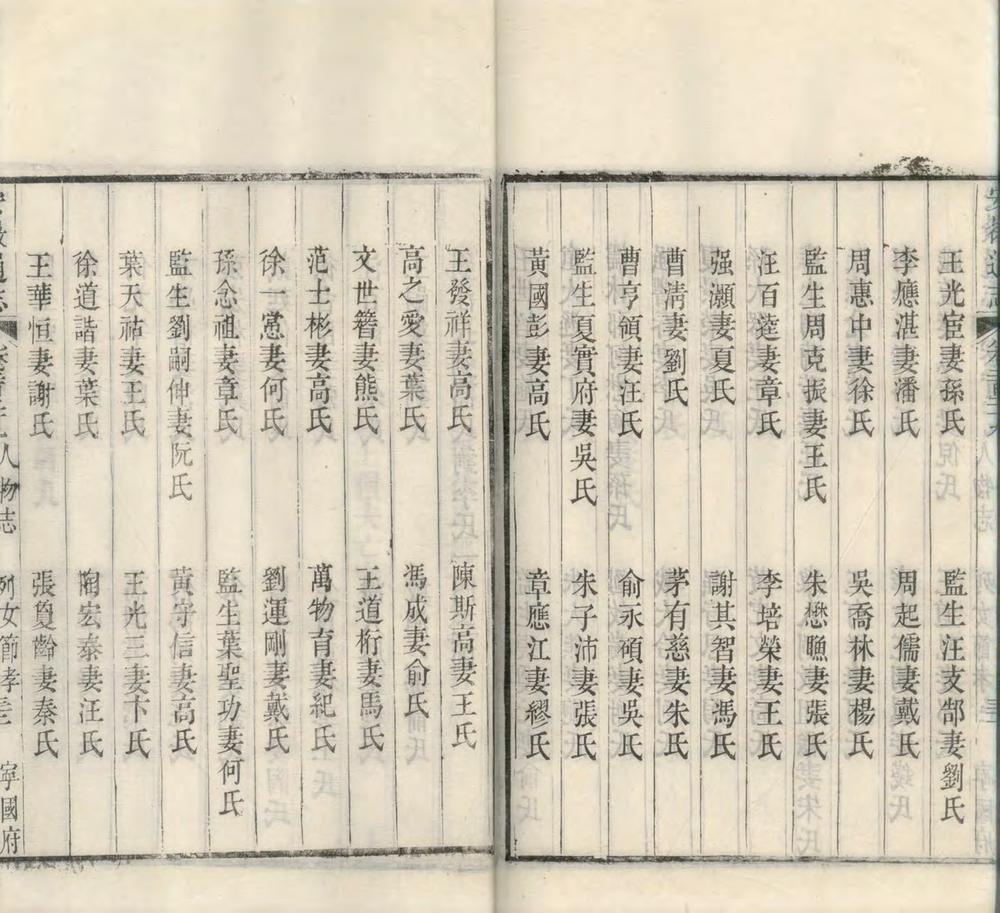 王光宦妻孫氏　監生汪支郜妻劉氏
李應湛妻潘氏　周起儒妻戴氏
周惠中妻徐氏　吳喬林妻楊氏
監生周克振妻王氏　朱懋瞧妻張氏
汪百逵妻章氏　李培榮妻王氏
强灝妻夏氏　謝其智妻馮氏
曹淸妻劉氏　茅有慈妻朱氏
曹亨領妻汪氏　俞永碩妻吳氏
監生夏實府妻吳氏　朱子沛妻張氏
黃國彭妻高氏　章應江妻繆氏
王發祥妻高氏　陳斯高妻王氏
高之愛妻葉氏　馮成妻俞氏
文世簪妻熊氏　王道桁妻馬氏
范士彬妻高氏　萬物育妻紀氏
徐一黨妻何氏　劉運剛妻戴氏
孫念祖妻章氏　監生葉聖功妻何氏
監生劉嗣伸妻阮氏　黃守信妻高氏
葉天祜妻王氏　王光三妻卞氏
徐道諧妻葉氏　陶宏泰妻汪氏
王華恒妻謝氏　張敻齡妻秦氏
通志　人物志　列女節孝　寧國府